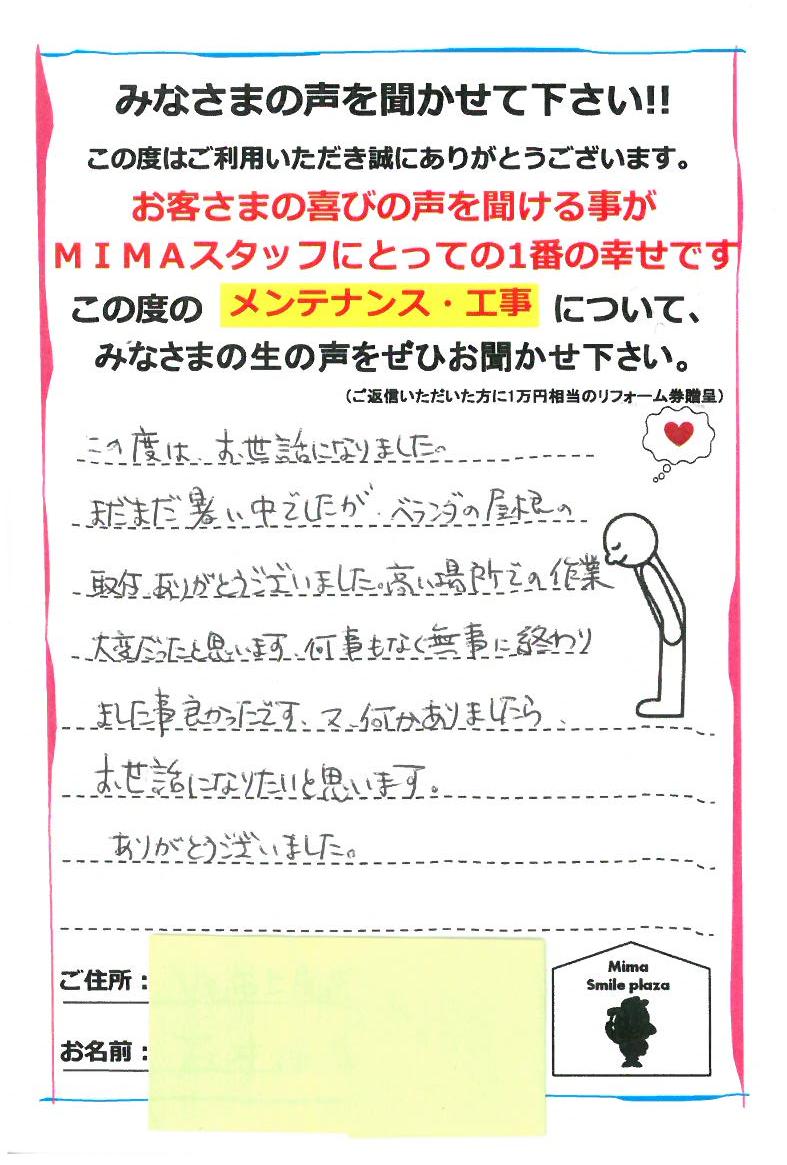 みなさまの声を聞かせて下さい!!
この度はご利用いただき誠にありがとうございます。
お客さまの喜びの声を聞ける事が
ＭＩＭＡスタッフにとっての1番の幸せです
この度の メンテナンス・工事 について、
みなさまの生の声をぜひお聞かせ下さい。
（ご返信いただいた方に1万円相当のリフォーム券贈呈）
この度は、お世話になりました。
まだまだ暑い中でしたが、ベランダの屋根の
取付ありがとうございました。高い場所での作業
大変だったと思います、何事もなく無事に終わり
ました事良かったです、又、何かありましたら、
お世話になりたいと思います。
ありがとうございました。
ご住所：
お名前：
Mima
Smile plaza